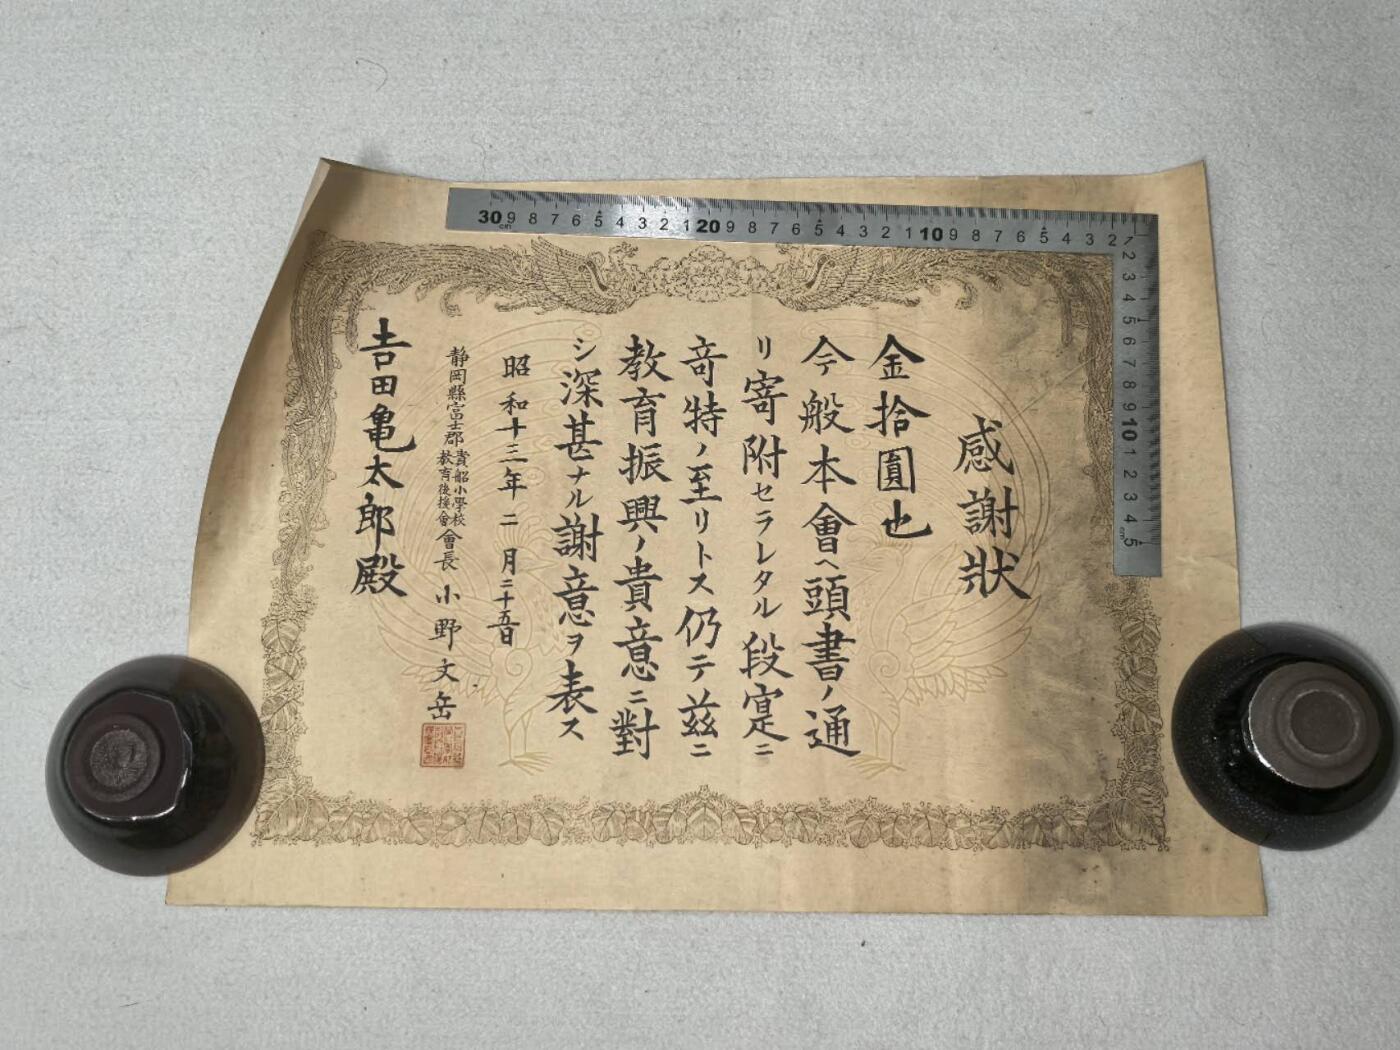 感謝狀
金拾圓也
今般本會ヘ頭書ノ通
リ寄附セラレタル段寔ニ
竒特ノ至リトス仍テ玆ニ
教育振興ノ貴意ニ對
シ深甚ナル謝意ヲ表ス
昭和十三年二月二十五日
静岡縣富士郡貴船小學校教育後援會會長 小野文岳
吉田亀太郎殿
30 9 8 7 6 5 4 3 2 1 20 9 8 7 6 5 4 3 2 1 10 9 8 7 6 5 4 3 2 1
cm
2 3 4 5 6 7 8 9 10 1 2 3 4 5
cm